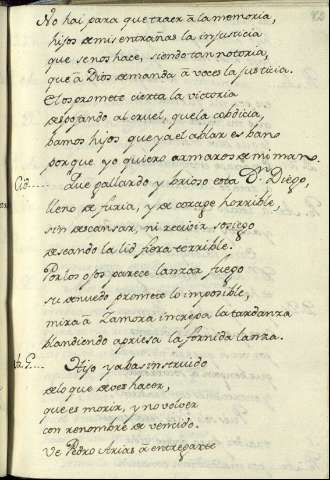 No hai para que traer â la memoria,
hijos de mis entrañas la injusticia
que se nos hace, siendo tan notoria,
que â Dios demanda â voces la justicia.
El os promete cierta la victoria
despojando al cruel, que la cobdicia,
bamos hijos que ya el ablar es bano
porque yo quiero armaros de mi mano.
Cid.... Que gallardo y brioso esta Dn. Diego,
lleno de furia, y de corage horrible,
sin descansar, ni recivir sosiego
deseando la lid fiera terrible.
Por los ojos parece lanzar fuego
su denuedo promete lo imposible,
mira â Zamora increpa la tardanza
blandiendo apriesa la fornida lanza.
Hijo ya bas instruido
de lo que deves hacer,
que es morir, y no volver
con renombre de vencido.
Ve Pedro Arias â entregarte